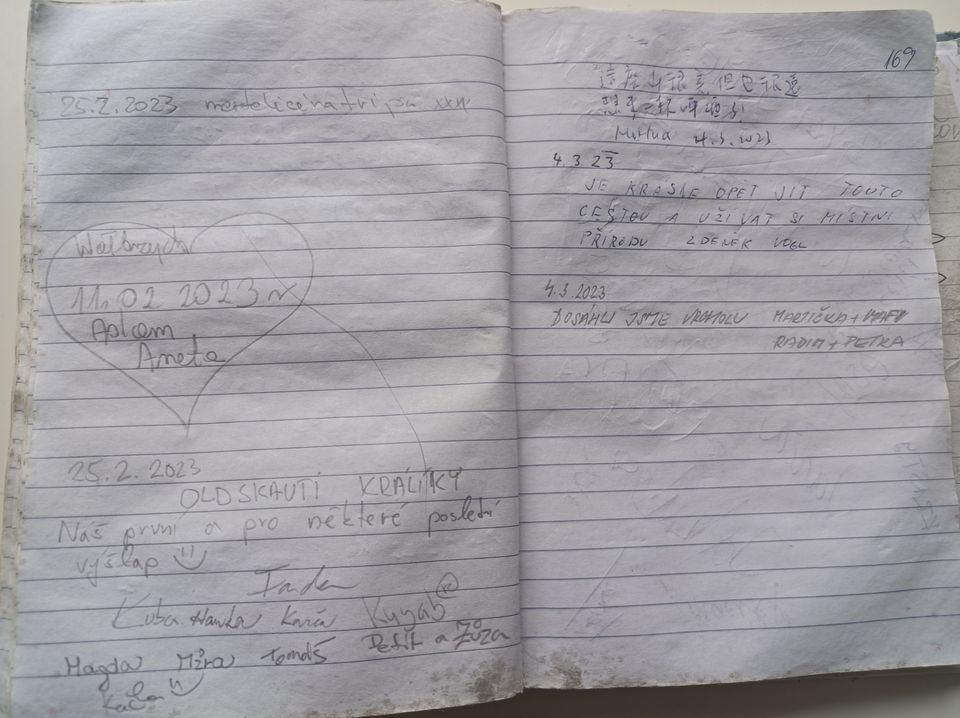 25.2.2023
Wałbrzych
11.02 2023 r
Adam
Aneta
25.2.2023
OLDSKAUTI KRÁLÍKY
Náš první a pro některé poslední
výšlap
Kuba Hanka Kača
Magda Míra Tomáš Petit a Zůza
169
這座山很美但也很遠
4.3.2023
4.3 23
JE KRÁSNÉ OPĚT JÍT TOUTO
CESTOU A UŽÍVAT SI MÍSTNÍ
PŘÍRODU ZDENĚK VOGL
4.3.2023
DOSÁHLI JSME VRCHOLU MARTIČKA +
RADIM + PETRA